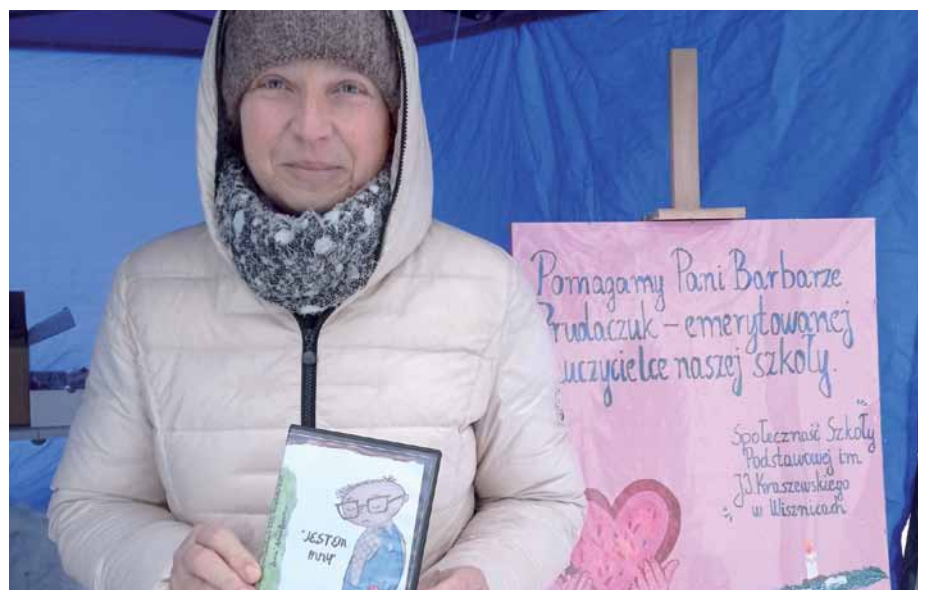 Pomagamy Pani Barbarze
Prudaczuk – emerytowanej
uczycielce naszej szkoły.
Społeczność Szkoły
Podstawowej im.
J.I. Kraszewskiego
w Wisznicach
"JESTEM